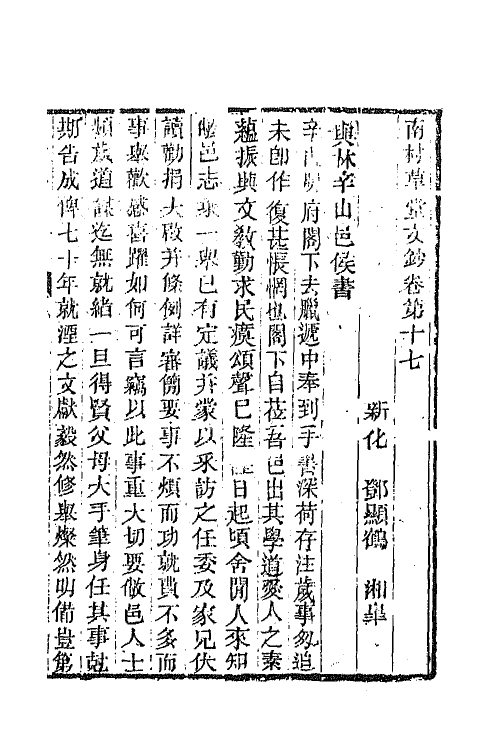 南村草堂文鈔卷第十七
新化 鄧顯鶴 湘皐
與林辛山邑侯書
辛山明府閣下去臘遞中奉到手書深荷存注歲事匆遒
未卽作復甚悵惘也閣下自莅吾邑出其學道愛人之素
蘊振興文敎勤求民瘼頌聲已隆 日起頃舍閒人來知
邑志乘一舉已有定議并蒙以采訪之任委及家兄伏
讀勸捐大啟并條例詳審簡要事不煩而功就費不多而
事舉歡感喜躍如何可言竊以此事重大切要敝邑人士
頻議道謀迄無就緒一旦得賢父母大手筆身任其事尅
期告成俾七十年就湮之文獻毅然修舉燦然明備豈第